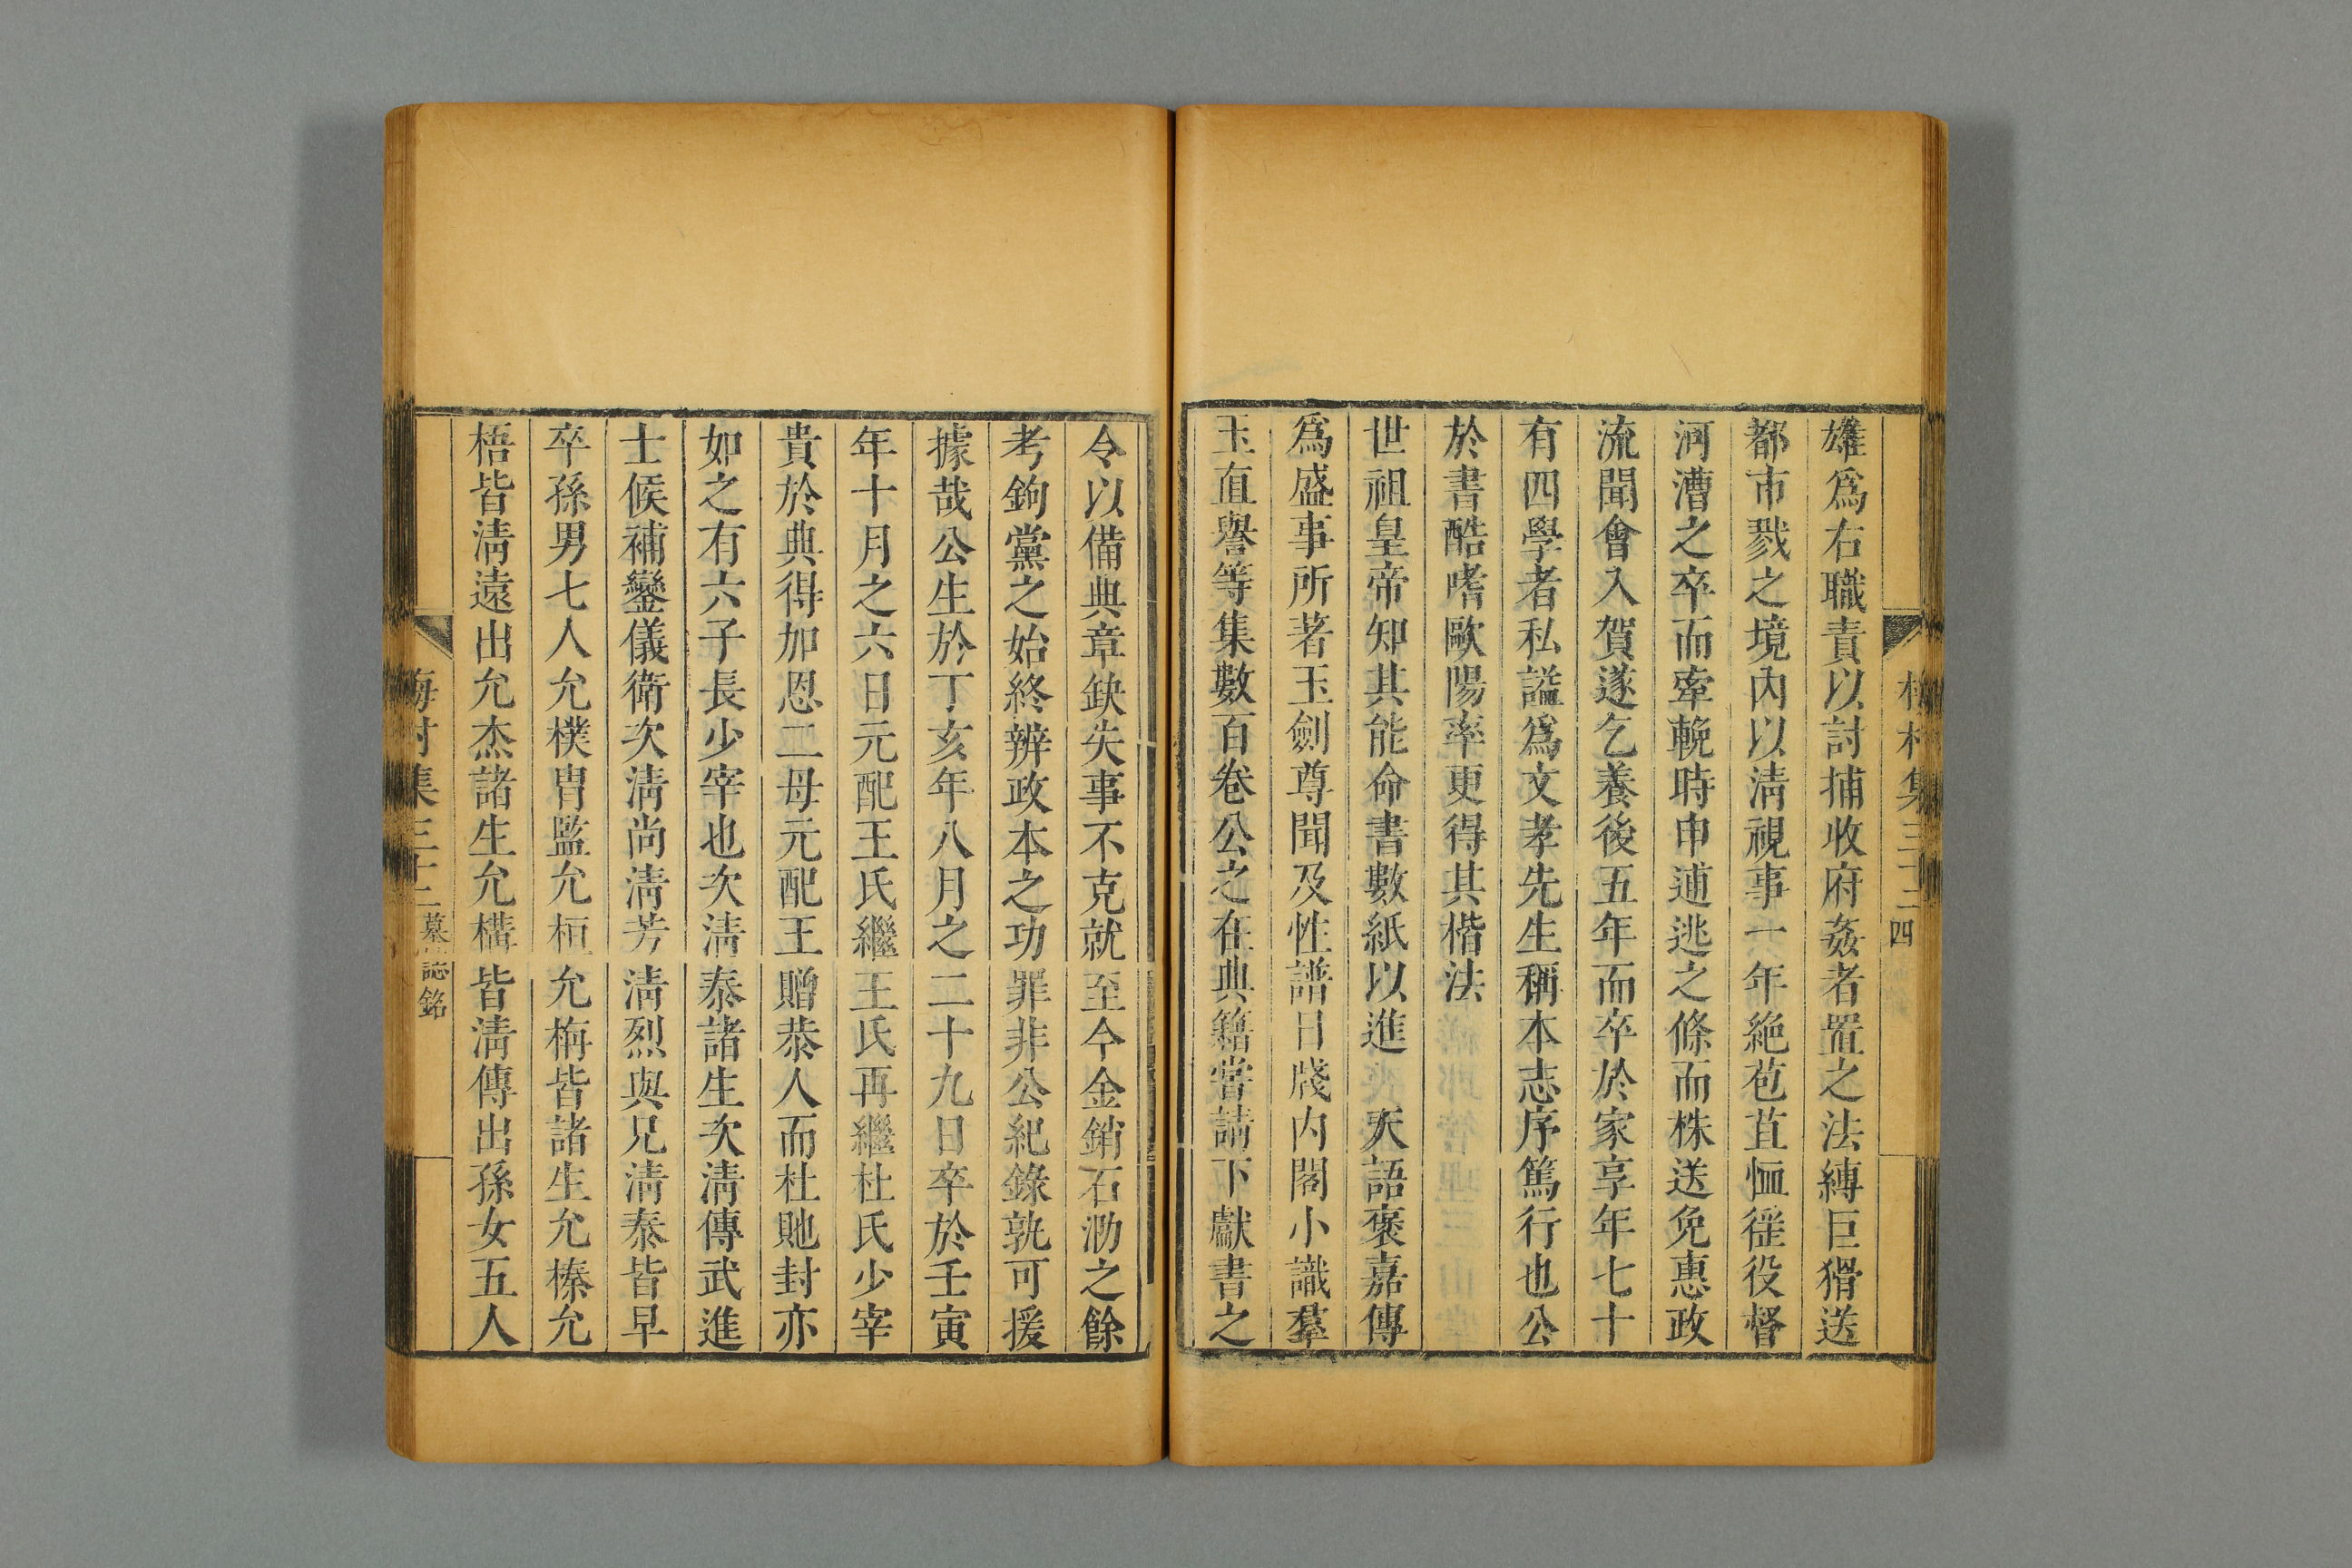 雄爲右職責以討捕收府姦者置之法縛巨猾送
都市戮之境內以淸視事一年絶苞苴恤徭役督
河漕之卒而牽輓時申逋逃之條而株送免惠政
流聞會入賀遂乞養後五年而卒於家享年七十
有四學者私謚爲文孝先生稱本志序篤行也公
於書酷嗜歐陽率更得其楷法
世祖皇帝知其能命書數紙以進 天語褒嘉傳
爲盛事所著玉劍尊聞及性譜日牋内閣小識羣
玉直譽等集數百卷公之在典籍嘗請下獻書之
令以備典章缺失事不克就至今金銷石泐之餘
考鉤黨之始終辨政本之功罪非公紀錄孰可援
據哉公生於丁亥年八月之二十九日卒於壬寅
年十月之六日元配王氏繼王氏再繼杜氏少宰
貴於典得加恩二母元配王贈恭人而杜貤封亦
如之有六子長少宰也次淸泰諸生次淸傳武進
士候補鑾儀衛次淸尚淸芳淸烈與兄淸泰皆早
卒孫男七人允樸胄監允桓允栴皆諸生允榛允
梧皆淸遠出允杰諸生允構皆淸傳出孫女五人
梅村集三十二 墓誌銘
村集三十二 四